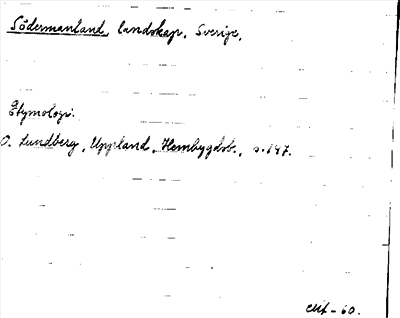 Södermanland, landskap, Sverige.
Etymologi.
O. Lundberg, Uppland, Hembygdsb., s. 147.
-60.